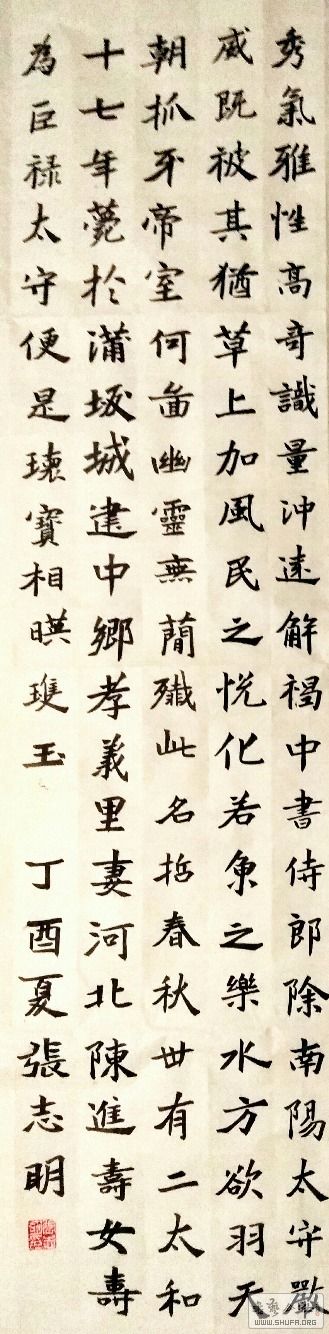 秀氣雅性高奇識量沖遠解褐中書侍郎除南陽太守嚴
威既被其猶草上加風民之悅化若魚之樂水方欲羽天
朝抓牙帝室何啚幽靈無蕳殲此名哲春秋卌有二太和
十七年薨於蒲坂城建中鄉孝義里妻河北陳進壽女壽
為巨祿太守便是瓌寶相暎璉玉 丁酉夏張志明
WWW.SHUFA.ORG